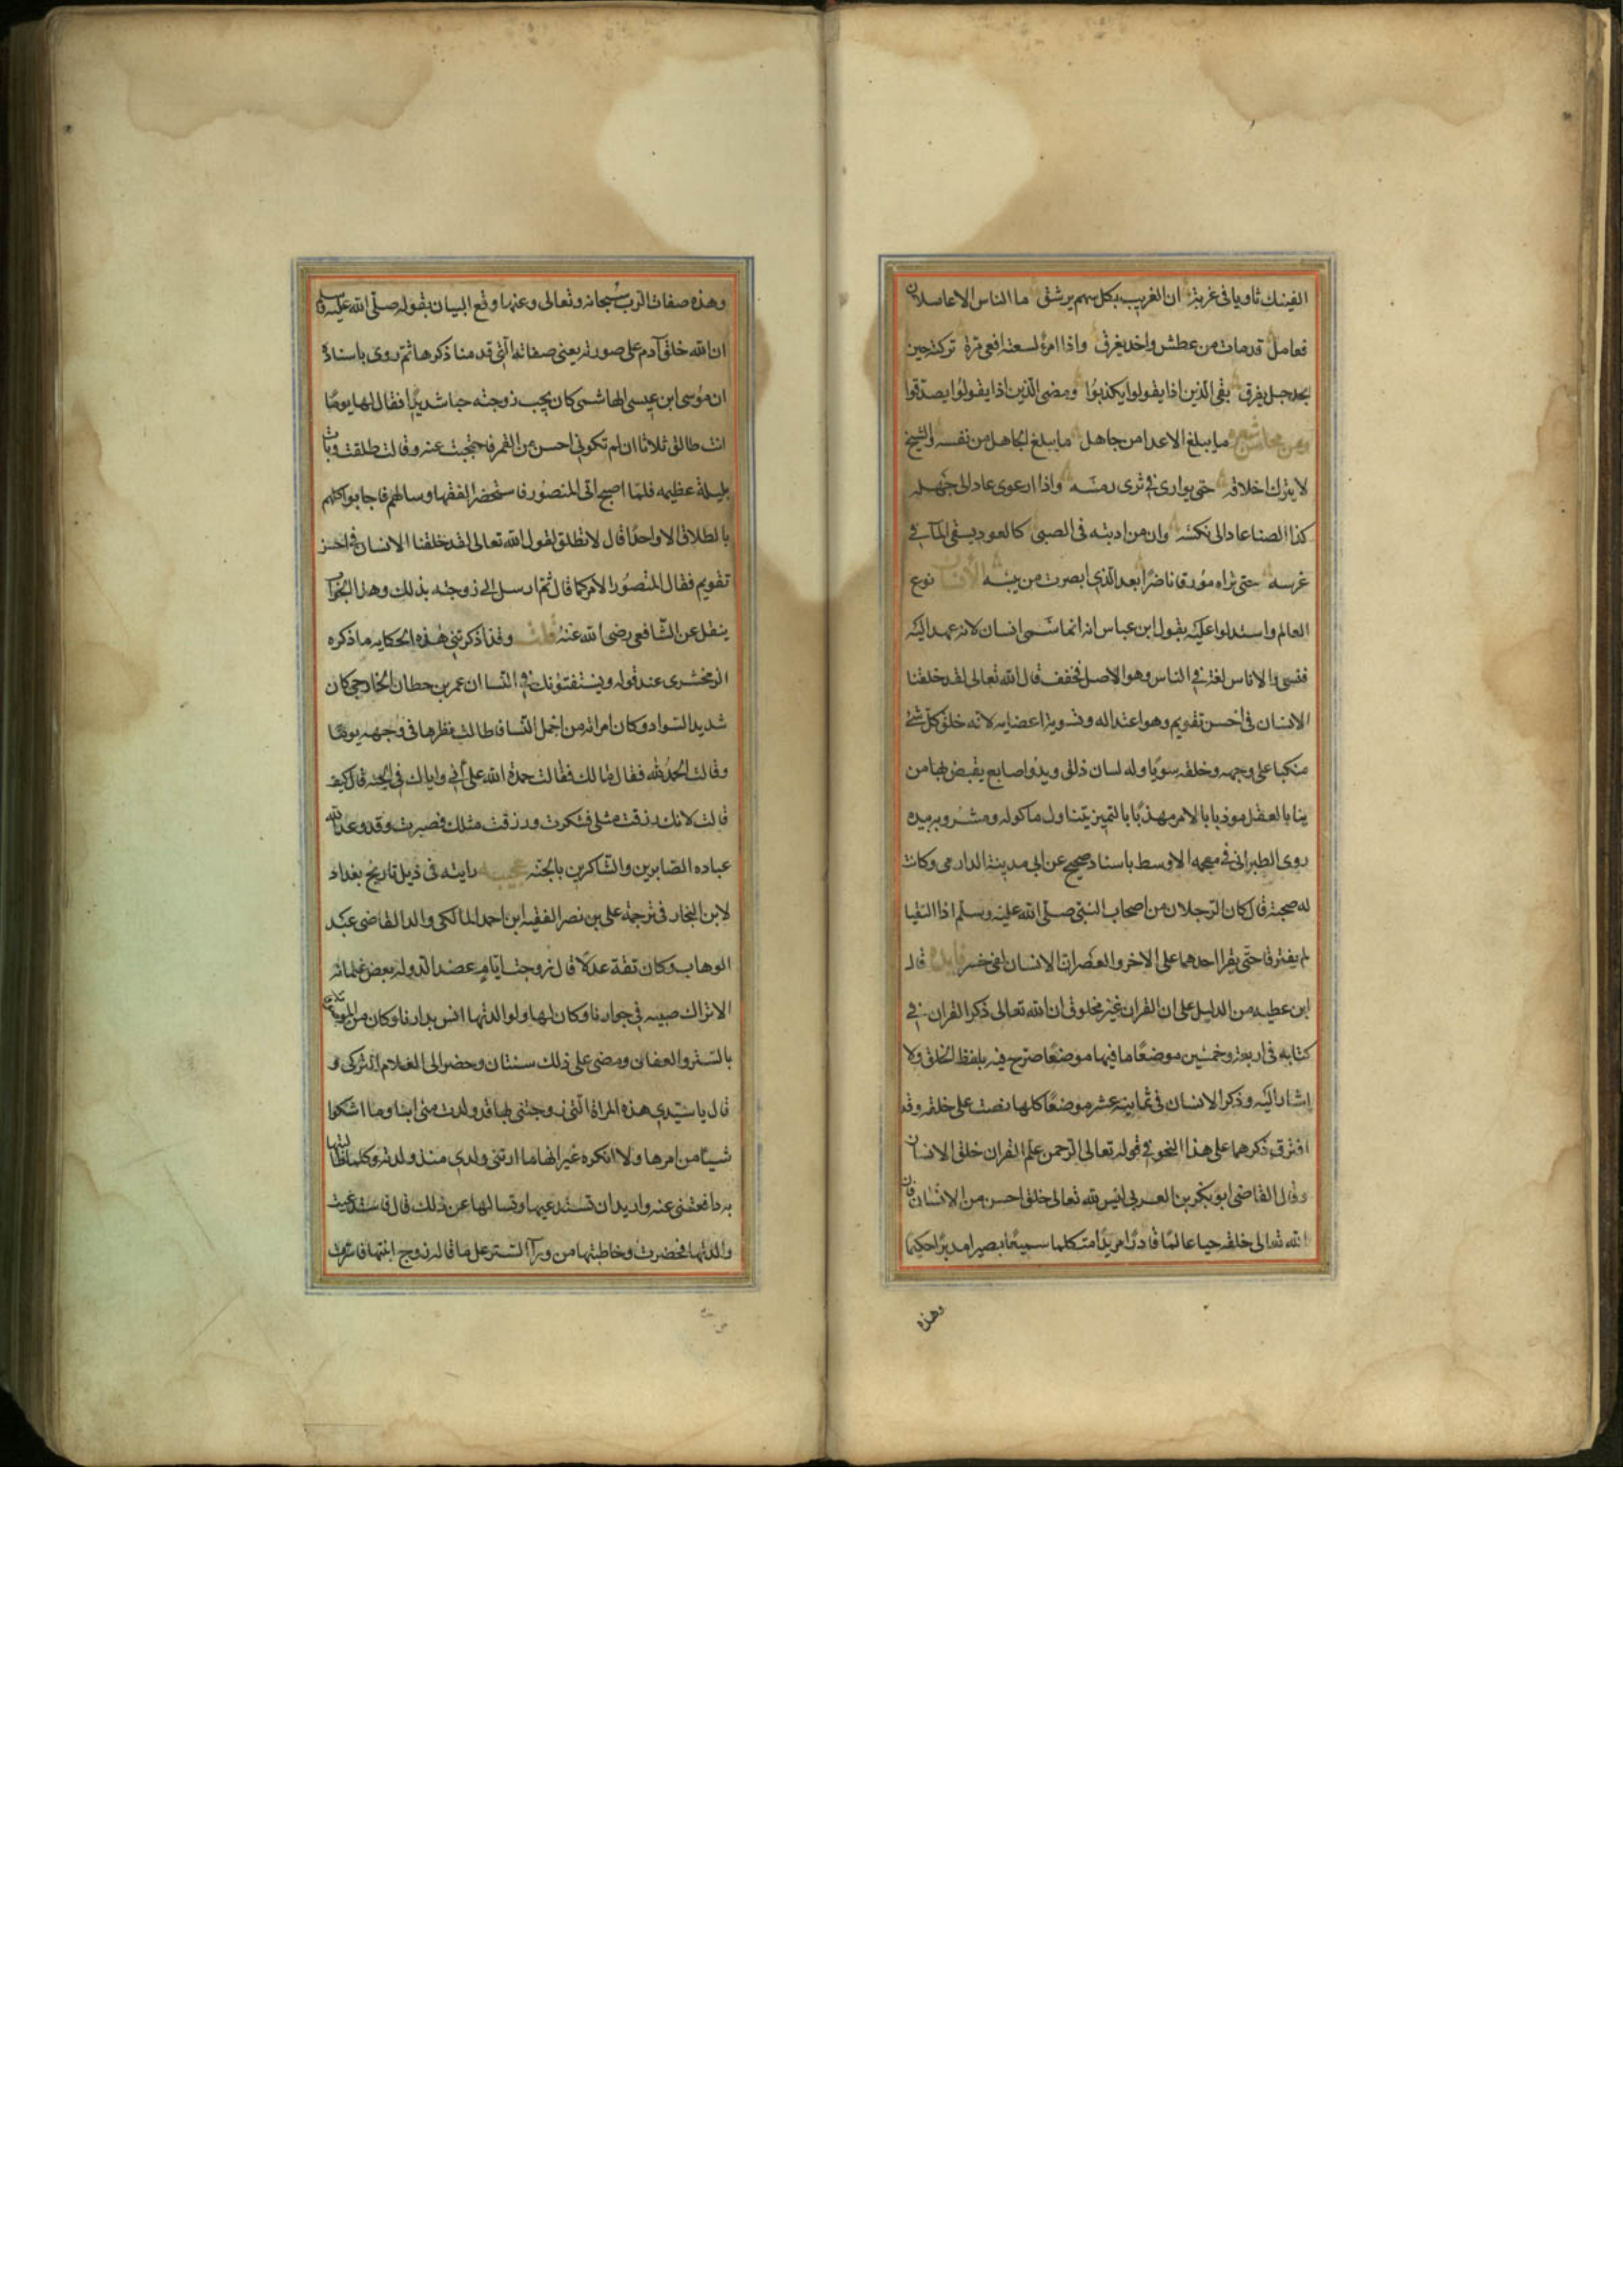 الفينك ثاويا في غربة ان الغريب بكل سهم يرشق ما الناس الا عاملان
فعامل قد مات من عطش واخد يغرق واذا امرؤ لسعته افعى مرة تركته حين
يجر حبل يفرق بقى الذين اذا يقولوا يكذبوا ومضى الذين اذا يقولوا يصدقوا
ومن محاسن شعره ما يبلغ الاعدا من جاهل ما يبلغ الجاهل من نفسه والشيخ
لا يترك اخلاقه حتى يوارى في ثرى رمسه واذا ارعوى عاد الى جهله
كذا الصنا عاد الى نكسه وان من ادبته في الصبى كالعود يسقى المآ في
غرسه حتى تراه مورقا ناضرا بعد الذي ابصرت من يبسه الانسان نوع
العالم واستدلوا عليه بقول ابن عباس انه انما سمى انسان لانه عهد اليه
فنسى والاناس لغة في الناس وهو الاصل فخفف قال الله تعالى لقد خلقنا
الانسان في احسن تقويم وهو اعتداله وتسوية اعضايه لانه خلق كل شئ
منكبا على وجهه وخلقه سويا وله لسان ذلق ويد واصابع يقبض بها من
ينا بالعقل موذبا بالامر مهذبا بالتميز يتناول ماكوله ومشروبه بيده
روى الطبراني في معجمه الاوسط باسناد صحيح عن ابي مدينة الدارمي وكانت
له صحبة قال كان الرجلان من اصحاب النبي صلى الله عليه وسلم اذا التقيا
لم يفترقا حتى يقرا احدهما على الاخر والعصر ان الانسان لفى خسر فايدة قال
ابن عطيه من الدليل على ان القران غير مخلوق ان الله تعالى ذكر القران في
كتابه في اربعة وخمسين موضعا ما فيها موضعا صرح فيه بلفظ الخلق ولا
اشار اليه وذكر الانسان في ثمانية عشر موضعا كلها نصت على خلقه وقد
افترق ذكرهما على هذا النحو في قوله تعالى الرحمن علم القران خلق الانسان
وقال القاضي ابو بكر بن العربي ليس لله تعالى خلق احسن من الانسان فان
الله تعالى خلقه حيا عالما قادرا مريدا متكلما سميعا بصيرا مدبرا حكيما
وهذه
وهذه صفات الرب سبحانه وتعالى وعنها وقع البيان بقوله صلى الله عليه وسلم
ان الله خلق آدم على صورته يعنى صفاته التى قدمنا ذكرها ثم روى باسناده
ان موسى ابن عيسى الهاشمى كان يحب زوجته حبا شديدا فقال لها يوما
انت طالق ثلاثا ان لم تكونى احسن من القمر فاحتجبت عنه وقالت طلقت وبات
بليلة عظيمه فلما اصبح اتى المنصور فاستحضر الفقها وسالهم فاجابوا كلهم
بالطلاق الا واحدا قال لا تطلق لقول الله تعالى لقد خلقنا الانسان في احسن
تقويم فقال المنصور الامر كما قال ثم ارسل الى زوجته بذلك وهذا الجواب
ينقل عن الشافعي رضى الله عنه قلت وقد اذكرتنى هذه الحكايه ما ذكره
الزمخشرى عند قوله ويستفتونك في النسا ان عمر بن حطان الخارجى كان
شديد السواد وكان امراته من اجمل النسا فاطالت نظرها في وجهه يوما
وقالت الحمد لله فقال مالك فقالت حمدت الله على اني واياك في الجنه قال كيف
قالت لانك رزقت مثلى فشكرت ورزقت مثلك فصبرت وقد وعد الله
عباده الصابرين والشاكرين بالجنه عجيبه رايته في ذيل تاريخ بغداد
لابن النجار في ترجمة على بن نصر الفقيه ابن احمد المالكى والد القاضى عبد
الوهاب وكان ثقة عدلا قال زوجت ايام عضد الدولة بعض غلمانه
الاتراك صبيه في جوارنا وكان لها ولوالدتها انس بدارنا وكان من
بالستر والعفاف ومضى على ذلك سنتان وحضر الى الغلام التركى و
قال يا سيدي هذه المراة التى زوجتنى بها قد ولدت منى ابنا وما اشكوا
شيئا من امرها ولا انكره غير انها ما ارتنى ولدى منذ ولدته وكلما طالبتها
به دافعتنى عنه واريد ان تستدعيها وتسالها عن ذلك قال فاستدعيت
والدتها فحضرت وخاطبتها من ورآ الستر على ما قاله زوج ابنتها